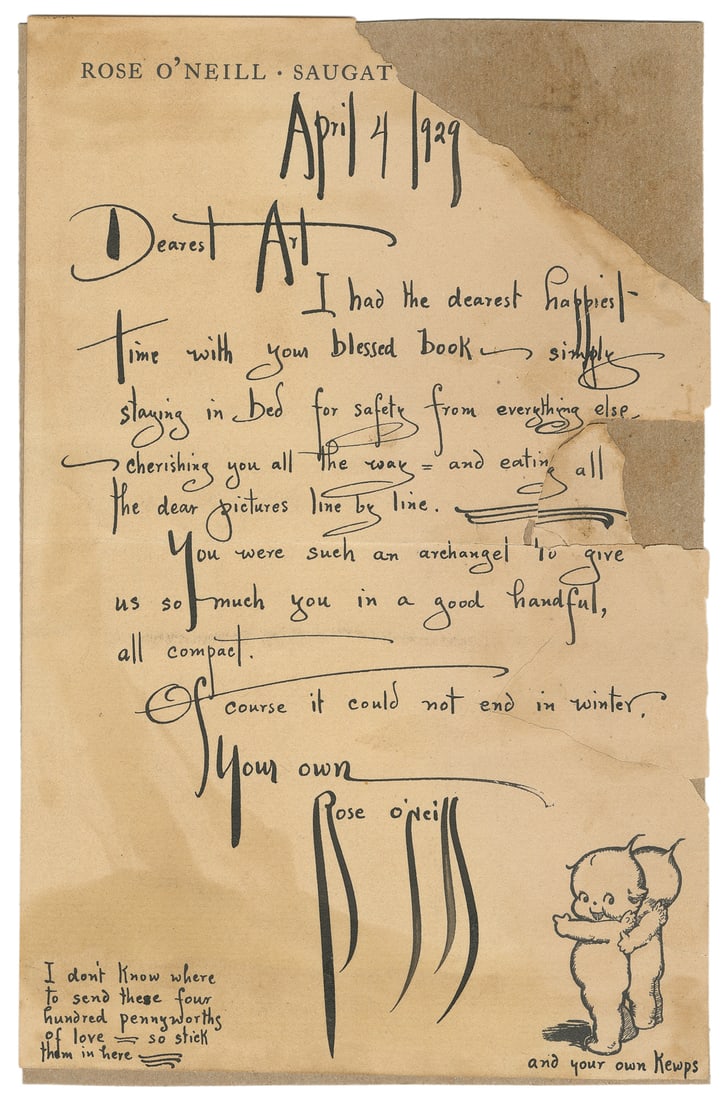 ROSE O'NEILL · SAUGAT
April 4 1929
Dearest Art
I had the dearest happiest
time with your blessed book — simply
staying in bed for safety from everything else,
cherishing you all the way = and eating all
the dear pictures line by line.
You were such an archangel to give
us so much you in a good handful,
all compact.
Of course it could not end in winter.
Your own
Rose O'Neill
I don't know where
to send these four
hundred pennyworths
of love = so stick
them in here
and your own Kewps